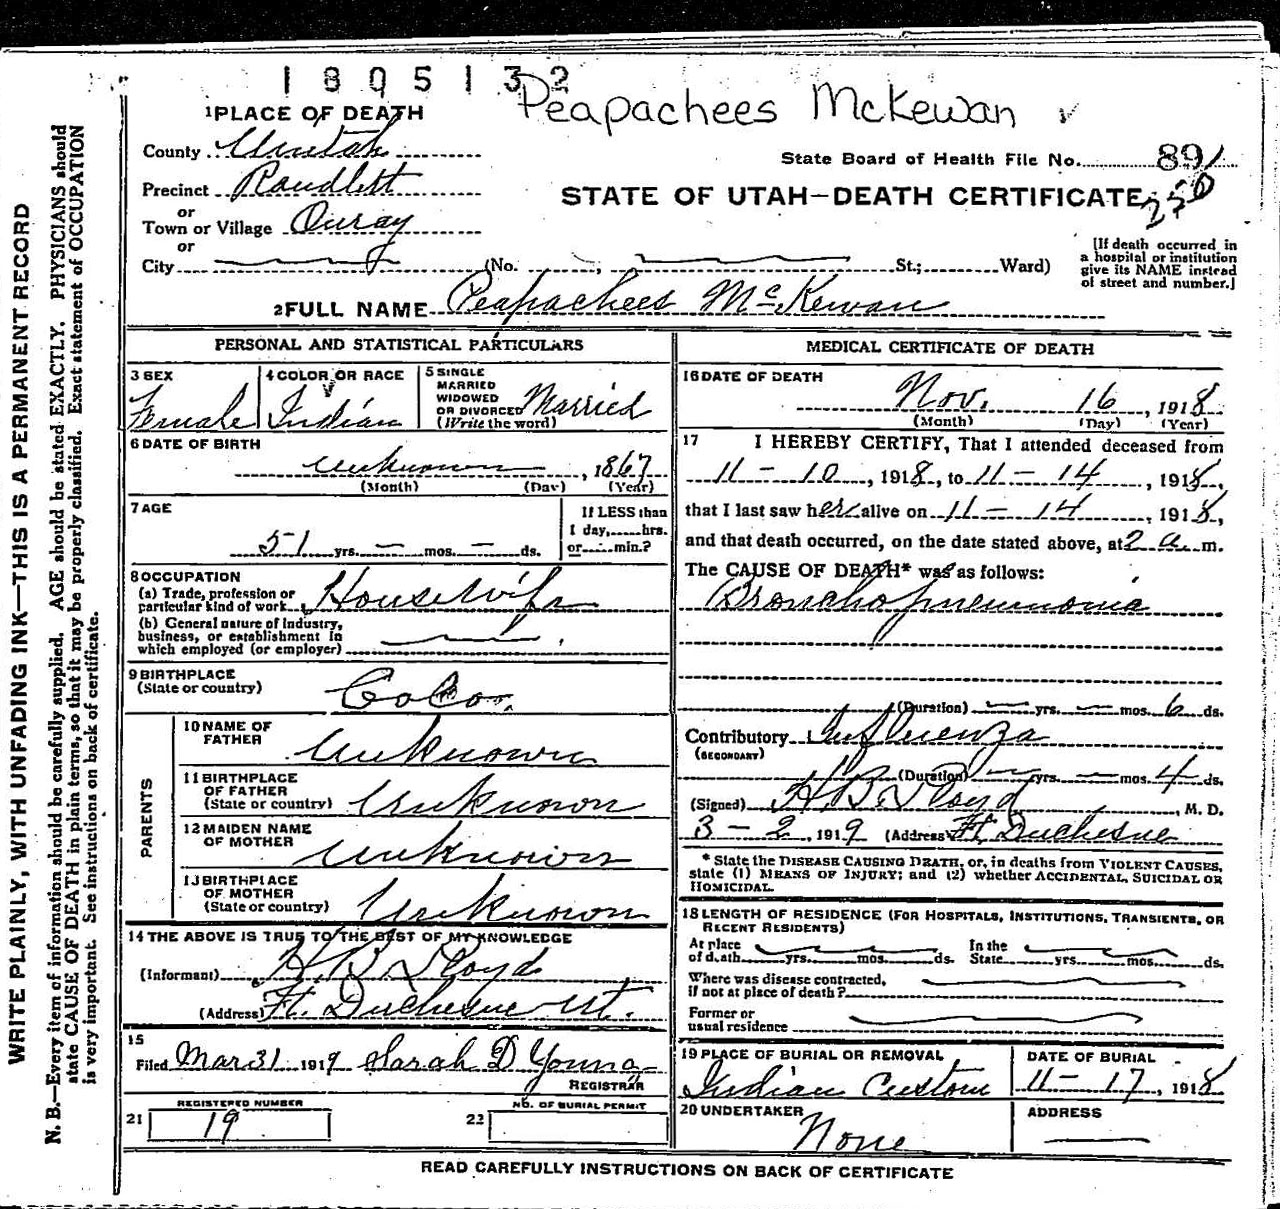 1805132
Peapachees McKewan
1 PLACE OF DEATH
County Uintah
State Board of Health File No. 891
Precinct Randlett
STATE OF UTAH—DEATH CERTIFICATE
250
or
Town or Village Ouray
or
City (No. St.; Ward)
[If death occurred in
a hospital or institution
give its NAME instead
of street and number.]
2 FULL NAME Peapachees McKewan
PERSONAL AND STATISTICAL PARTICULARS
3 SEX
Female
4 COLOR OR RACE
Indian
5 SINGLE
MARRIED
WIDOWED
OR DIVORCED Married
(Write the word)
6 DATE OF BIRTH
unknown, 1867
(Month) (Day) (Year)
7 AGE
51 yrs. — mos. — ds.
If LESS than
1 day, hrs.
or min.?
8 OCCUPATION
(a) Trade, profession or
particular kind of work Housewife
(b) General nature of industry,
business, or establishment in
which employed (or employer)
9 BIRTHPLACE
(State or country) Colo.
PARENTS
10 NAME OF
FATHER Unknown
11 BIRTHPLACE
OF FATHER
(State or country) Unknown
12 MAIDEN NAME
OF MOTHER Unknown
13 BIRTHPLACE
OF MOTHER
(State or country) Unknown
14 THE ABOVE IS TRUE TO THE BEST OF MY KNOWLEDGE
(Informant) H.B. Lloyd
(Address) Ft. Duchesne Ut.
15
Filed Mar 31 1919 Sarah D Young
REGISTRAR
REGISTERED NUMBER
21 19
NO. OF BURIAL PERMIT
22
MEDICAL CERTIFICATE OF DEATH
16 DATE OF DEATH
Nov. 16, 1918
(Month) (Day) (Year)
17 I HEREBY CERTIFY, That I attended deceased from
11 – 10, 1918, to 11 – 14, 1918,
that I last saw her alive on 11 – 14, 1918,
and that death occurred, on the date stated above, at 2 a. m.
The CAUSE OF DEATH* was as follows:
Broncho pneumonia
(Duration) — yrs. — mos. 6 ds.
Contributory Influenza
(SECONDARY)
(Duration) — yrs. — mos. 4 ds.
(Signed) H.B. Lloyd, M. D.
3 – 2, 1919 (Address) Ft. Duchesne
* State the DISEASE CAUSING DEATH, or, in deaths from VIOLENT CAUSES,
state (1) MEANS OF INJURY; and (2) whether ACCIDENTAL, SUICIDAL OR
HOMICIDAL.
18 LENGTH OF RESIDENCE (FOR HOSPITALS, INSTITUTIONS, TRANSIENTS, OR
RECENT RESIDENTS)
At place
of death yrs. mos. ds.
In the
State yrs. mos. ds.
Where was disease contracted,
if not at place of death?
Former or
usual residence
19 PLACE OF BURIAL OR REMOVAL
Indian Custom
DATE OF BURIAL
11 – 17, 1918
20 UNDERTAKER
None
ADDRESS
READ CAREFULLY INSTRUCTIONS ON BACK OF CERTIFICATE
WRITE PLAINLY, WITH UNFADING INK—THIS IS A PERMANENT RECORD
N. B.—Every item of information should be carefully supplied. AGE should be stated EXACTLY. PHYSICIANS should
state CAUSE OF DEATH in plain terms, so that it may be properly classified. Exact statement of OCCUPATION
is very important. See instructions on back of certificate.